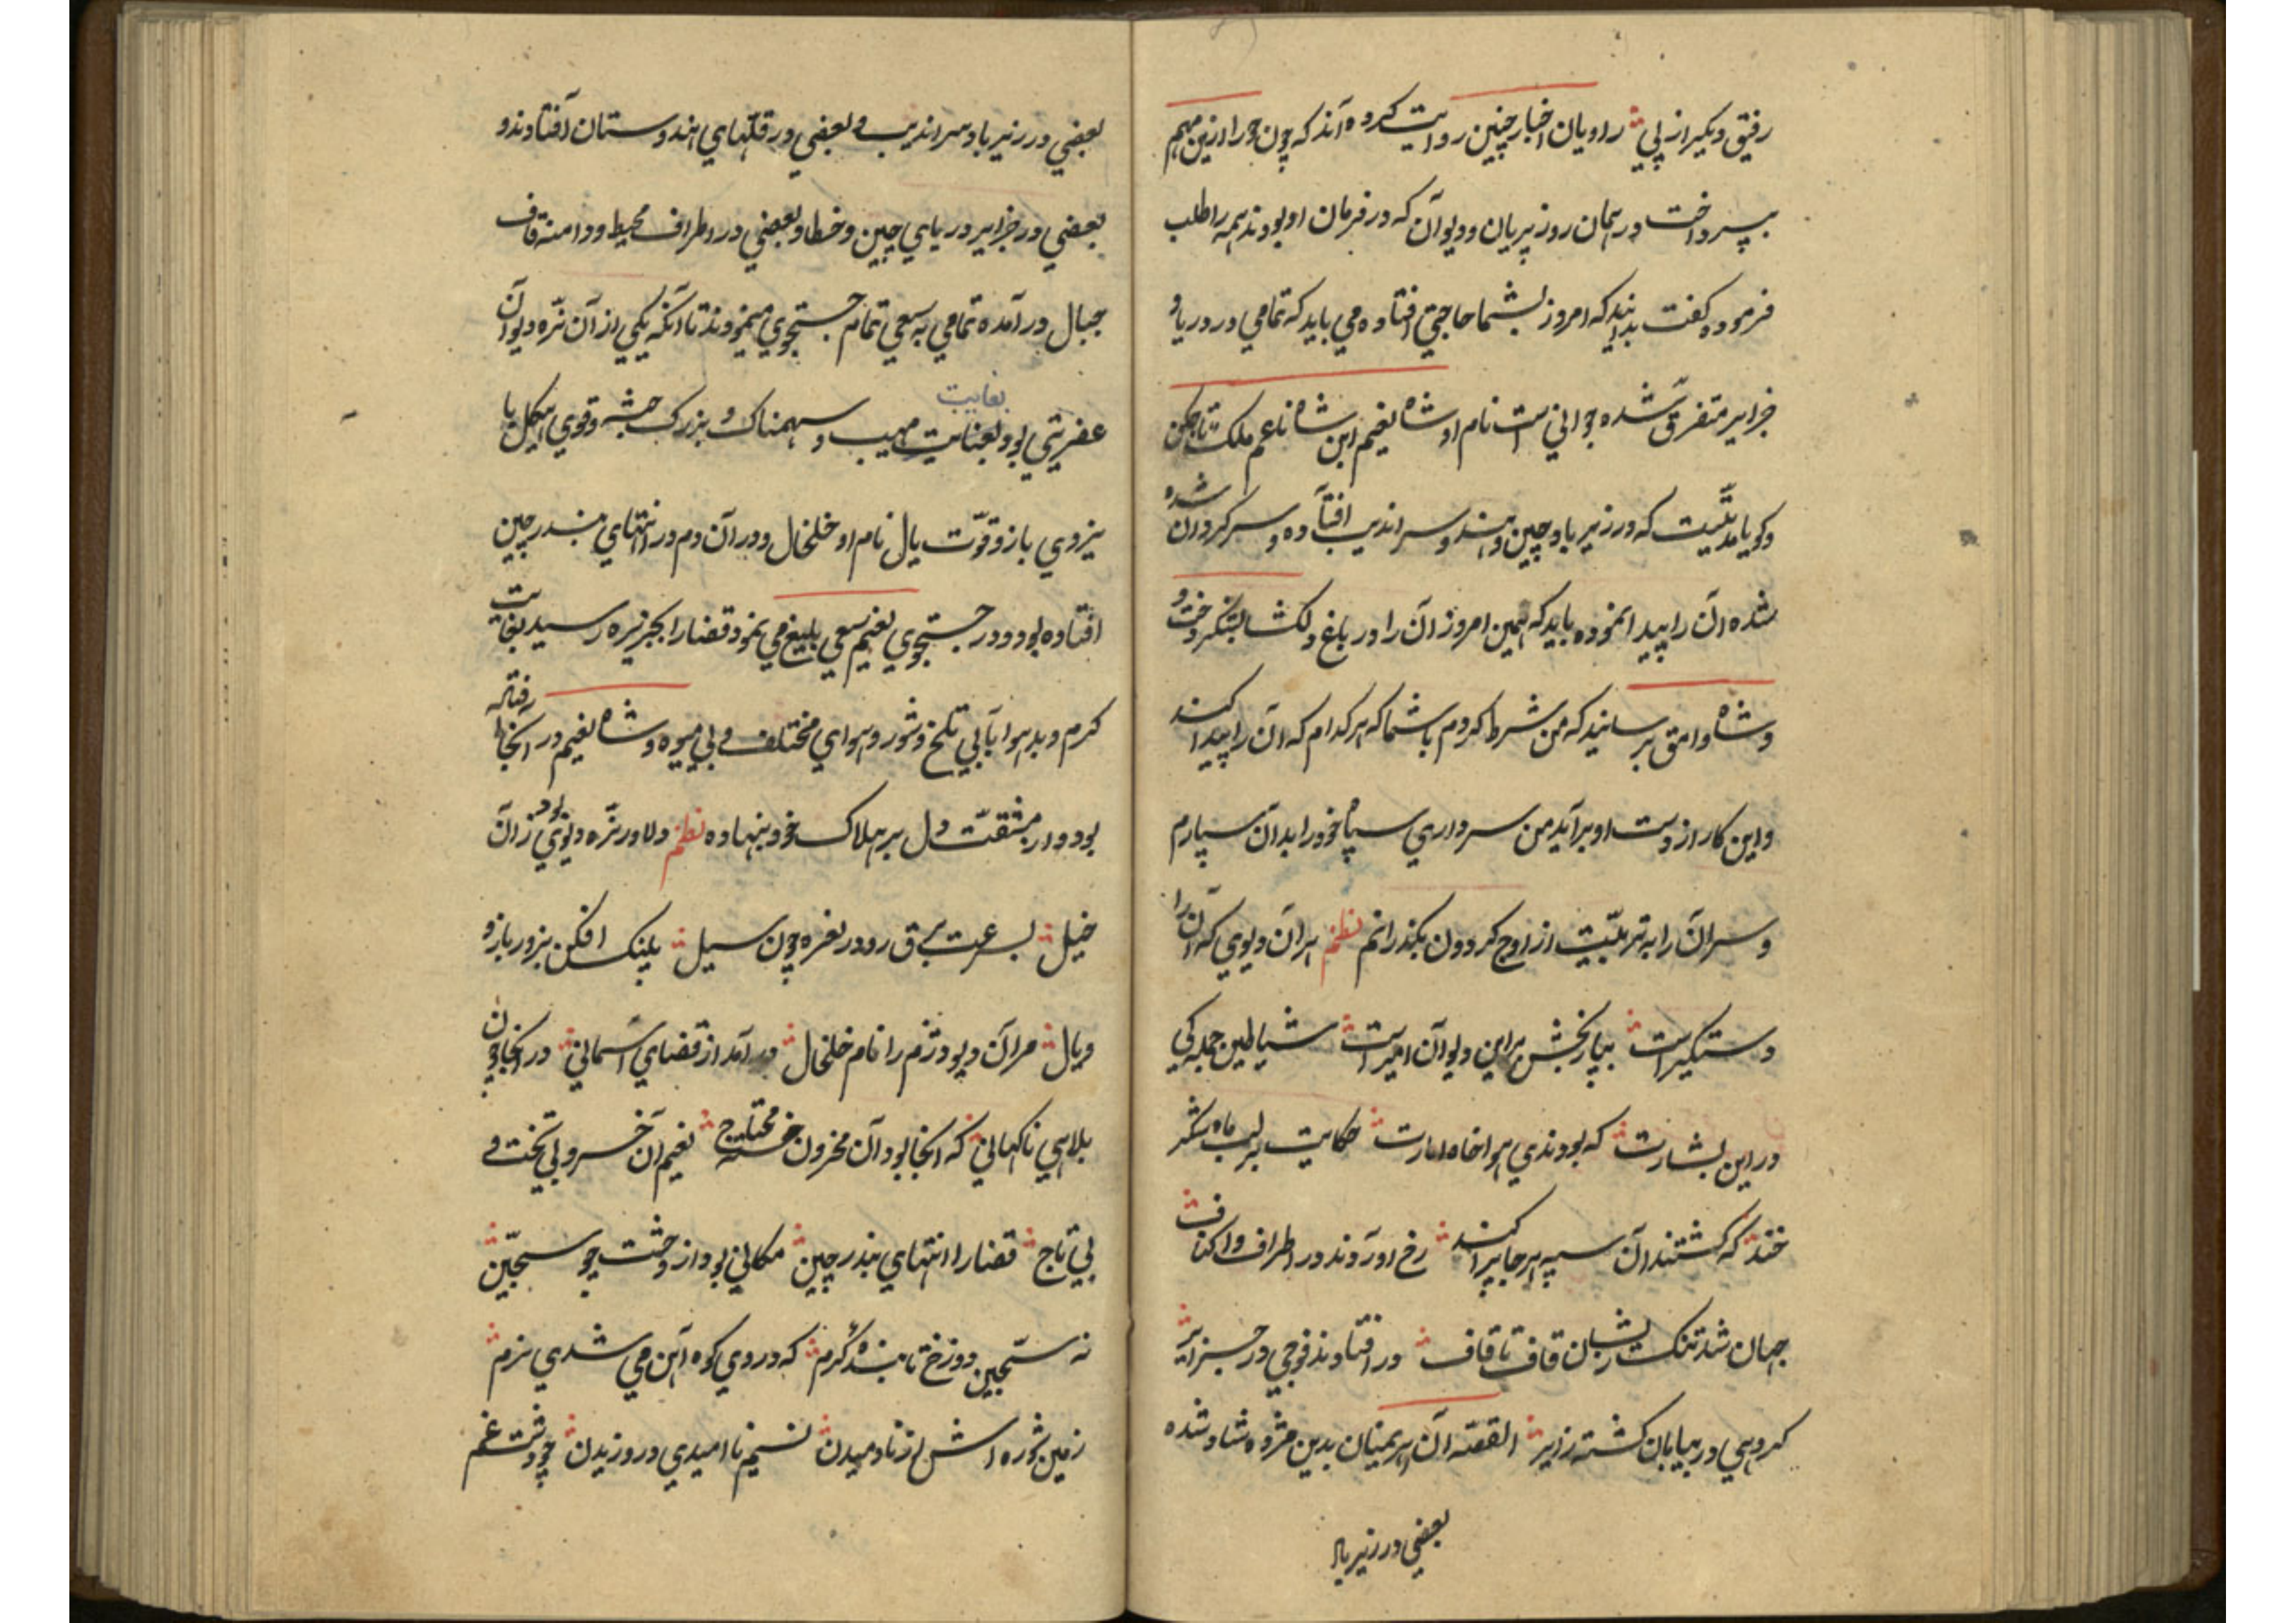 رفیق دیگر از پی راویان اخبار چنین روایت کرده آند که چون حورا ازین مهم
بپرداخت در همان روز پریان و دیوآن که در فرمان او بودند همه را طلب
فرموده گفت بدانید که امروز بشما حاجتی افتاده می باید که تمامی در دریا و
جزایر متفرق شده جوانی است نام او شاه نعیم ابن شاه ناعم ملک
و گویا مدتیست که در زیرباد چین و هند و سراندیب افتآده و سرگردان شده
شده آن را پیدا نموده باید که همین امروز آن را در باغ دلکشا
و شاه وامق برسانید که من شرط کردم باشما که هرکدام که آن را پیدا کند
و این کار از دست او برآید من سرداری سپاه خود را بدآن سپارم
و سرآن را به تربیت از اوج کردون بگذرانم نظم هرآن دیوی که آن را
دستگیر است بیارنجش براین دیوآن امیر است شیاطین جمله کی
در این بشارت که بودندی هواخاه امارت حکایت برلب
خند که گشتند آن سپه هرجا پراکند رخ اورآوند در اطراف و اکناف
جهان شد تنک ز ایشان قاف تا قاف در افتاوند فوجی در جزایر
کروهی در بیابان کشته زایر القصه آن اهرمنان بدین مژوه شاد شده
بعضی در زیر باد
بعضی در زیرباد سراندیب و بعضی در قلتهای هندوستان آفتاوند و
بعضی در جزایر دریای چین و خطا و بعضی در اطراف محیط و دامنه قاف
جبال در آمده تمامی به سعی تمام جستجوی مینمودند تا آنکه یکی از آن نره دیوآن
عفریتی بود بغایت مهیب و سهمناک و بزرک جثه و قوی هیکل با
بغایت
نیروی بازو قوّت یال نام او خلخال و در آن دم در انتهای بندر چین
افتاده بود و در جستجوی نعیم سعی بلیغ می نمود قضا را بجزیره رسید بغایت
کرم و بدهوا بآبی تلخ و شور و هوای مختلف و بی میوه و شاه نعیم در آنجا
بود و از مشقت دل بر هلاک خود بنهاده نظم دلاور نره دیوی بود زان
خیل بسرعت برق رو در نعره چون سیل پلنک افکن بزور بازو
و یال مرآن دیو دژم را نام خلخال در آمد از قضای آسمانی در آنجا چون
بلاهی ناکهانی که آنجا بود آن محزون محتاج نعیم آن خسرو بی تخت و
بی تاج قضا را انتهای بندر چین مکانی بود از وحشت چو سجّین
نه سجّین دوزخ تابنده گرم که در وی کوه آهن می شدی نرم
زمین شوره اش از نادمیدن نسیم ناامیدی در وزیدن چو دشت غم